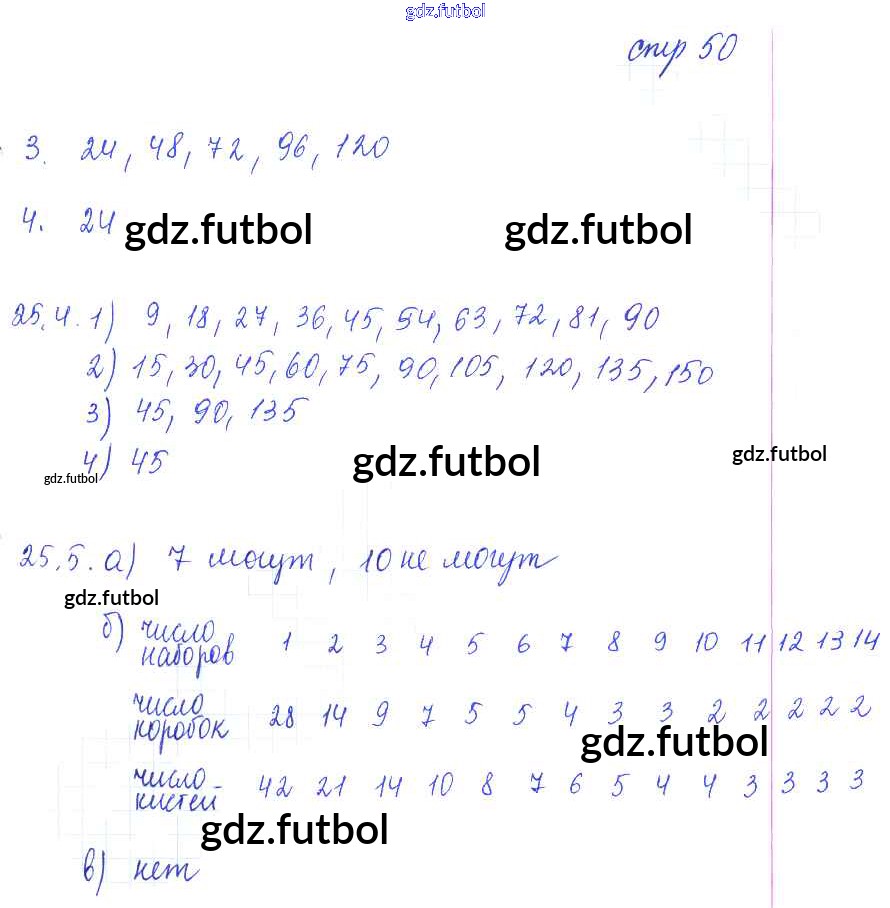 gdz.futbol
стр 50
3. 24, 48, 72, 96, 120
4. 24
gdz.futbol gdz.futbol
25.4. 1) 9, 18, 27, 36, 45, 54, 63, 72, 81, 90
2) 15, 30, 45, 60, 75, 90, 105, 120, 135, 150
3) 45, 90, 135
4) 45
gdz.futbol gdz.futbol gdz.futbol
25.5. а) 7 могут, 10 не могут
gdz.futbol
б) число наборов 1 2 3 4 5 6 7 8 9 10 11 12 13 14
число коробок 28 14 9 7 5 5 4 3 3 2 2 2 2 2
gdz.futbol
число кистей 42 21 14 10 8 7 6 5 4 4 3 3 3 3
gdz.futbol
в) нет